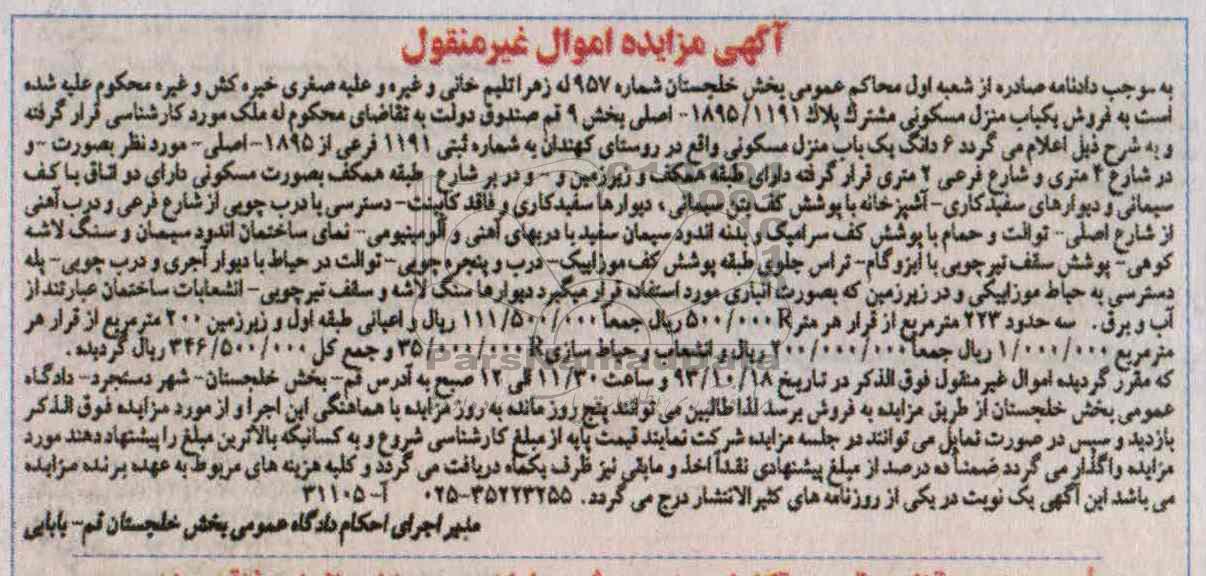 آگهی مزایده اموال غیرمنقول
به موجب دادنامه صادره از شعبه اول محاکم عمومی بخش خلجستان شماره ۹۵۷ له زهرا تلیم خانی و غیره و علیه صغری خیره کش و غیره محکوم علیه شده
است به فروش یکباب منزل مسکونی مشترک پلاک ۱۸۹۵/۱۱۹۱- اصلی بخش ۹ قم صندوق دولت به تقاضای محکوم له ملک مورد کارشناسی قرار گرفته
و به شرح ذیل اعلام می گردد ۶ دانگ یک باب منزل مسکونی واقع در روستای کهندان به شماره ثبتی ۱۱۹۱ فرعی از ۱۸۹۵- اصلی- مورد نظر بصورت -و
در شارع ۴ متری و شارع فرعی ۲ متری قرار گرفته دارای طبقه همکف و زیرزمین و ۰ و در بر شارع طبقه همکف بصورت مسکونی دارای دو اتاق با کف
سیمانی و دیوارهای سفیدکاری- آشپزخانه با پوشش کف بتن سیمانی، دیوارها سفیدکاری و فاقد کابینت- دسترسی با درب چوبی از شارع فرعی و درب آهنی
از شارع اصلی- توالت و حمام با پوشش کف سرامیک و بدنه اندود سیمان سفید با دربهای آهنی و آلومینیومی- نمای ساختمان اندود سیمان و سنگ لاشه
کوهی- پوشش سقف تیرچوبی با ایزوگام- تراس جلوی طبقه پوشش کف موزاییک- درب و پنجره چوبی- توالت در حیاط با دیوار آجری و درب چوبی- پله
دسترسی به حیاط موزاییکی و در زیرزمین که بصورت انباری مورد استفاده قرار میگیرد دیوارها سنگ لاشه و سقف تیرچوبی- انشعابات ساختمان عبارتند از
آب و برق. سه حدود ۲۲۳ مترمربع از قرار هر متر R ۵۰۰/۰۰۰ ریال جمعاً ۱۱۱/۵۰۰/۰۰۰ ریال و اعیانی طبقه اول و زیرزمین ۲۰۰ مترمربع از قرار هر
مترمربع ۱/۰۰۰/۰۰۰ ریال جمعاً ۲۰۰/۰۰۰/۰۰۰ ریال و انشعاب و حیاط سازی R ۳۵/۰۰۰/۰۰۰ و جمع کل ۳۴۶/۵۰۰/۰۰۰ ریال گردیده.
که مقرر گردیده اموال غیرمنقول فوق الذکر در تاریخ ۹۳/۱۰/۱۸ و ساعت ۱۱/۳۰ الی ۱۲ صبح به آدرس قم- بخش خلجستان- شهر دستجرد- دادگاه
عمومی بخش خلجستان از طریق مزایده به فروش برسد لذا طالبین می توانند پنج روز مانده به روز مزایده با هماهنگی این اجرا و از مورد مزایده فوق الذکر
بازدید و سپس در صورت تمایل می توانند در جلسه مزایده شرکت نمایند قیمت پایه از مبلغ کارشناسی شروع و به کسانیکه بالاترین مبلغ را پیشنهاد دهند مورد
مزایده واگذار می گردد ضمناً ده درصد از مبلغ پیشنهادی نقداً اخذ و مابقی نیز ظرف یکماه دریافت می گردد و کلیه هزینه های مربوط به عهده برنده مزایده
می باشد این آگهی یک نوبت در یکی از روزنامه های کثیرالانتشار درج می گردد. ۰۲۵-۳۵۲۲۳۲۵۵ آ-۳۱۱۰۵
مدیر اجرای احکام دادگاه عمومی بخش خلجستان قم- بابایی
ParsNamadData